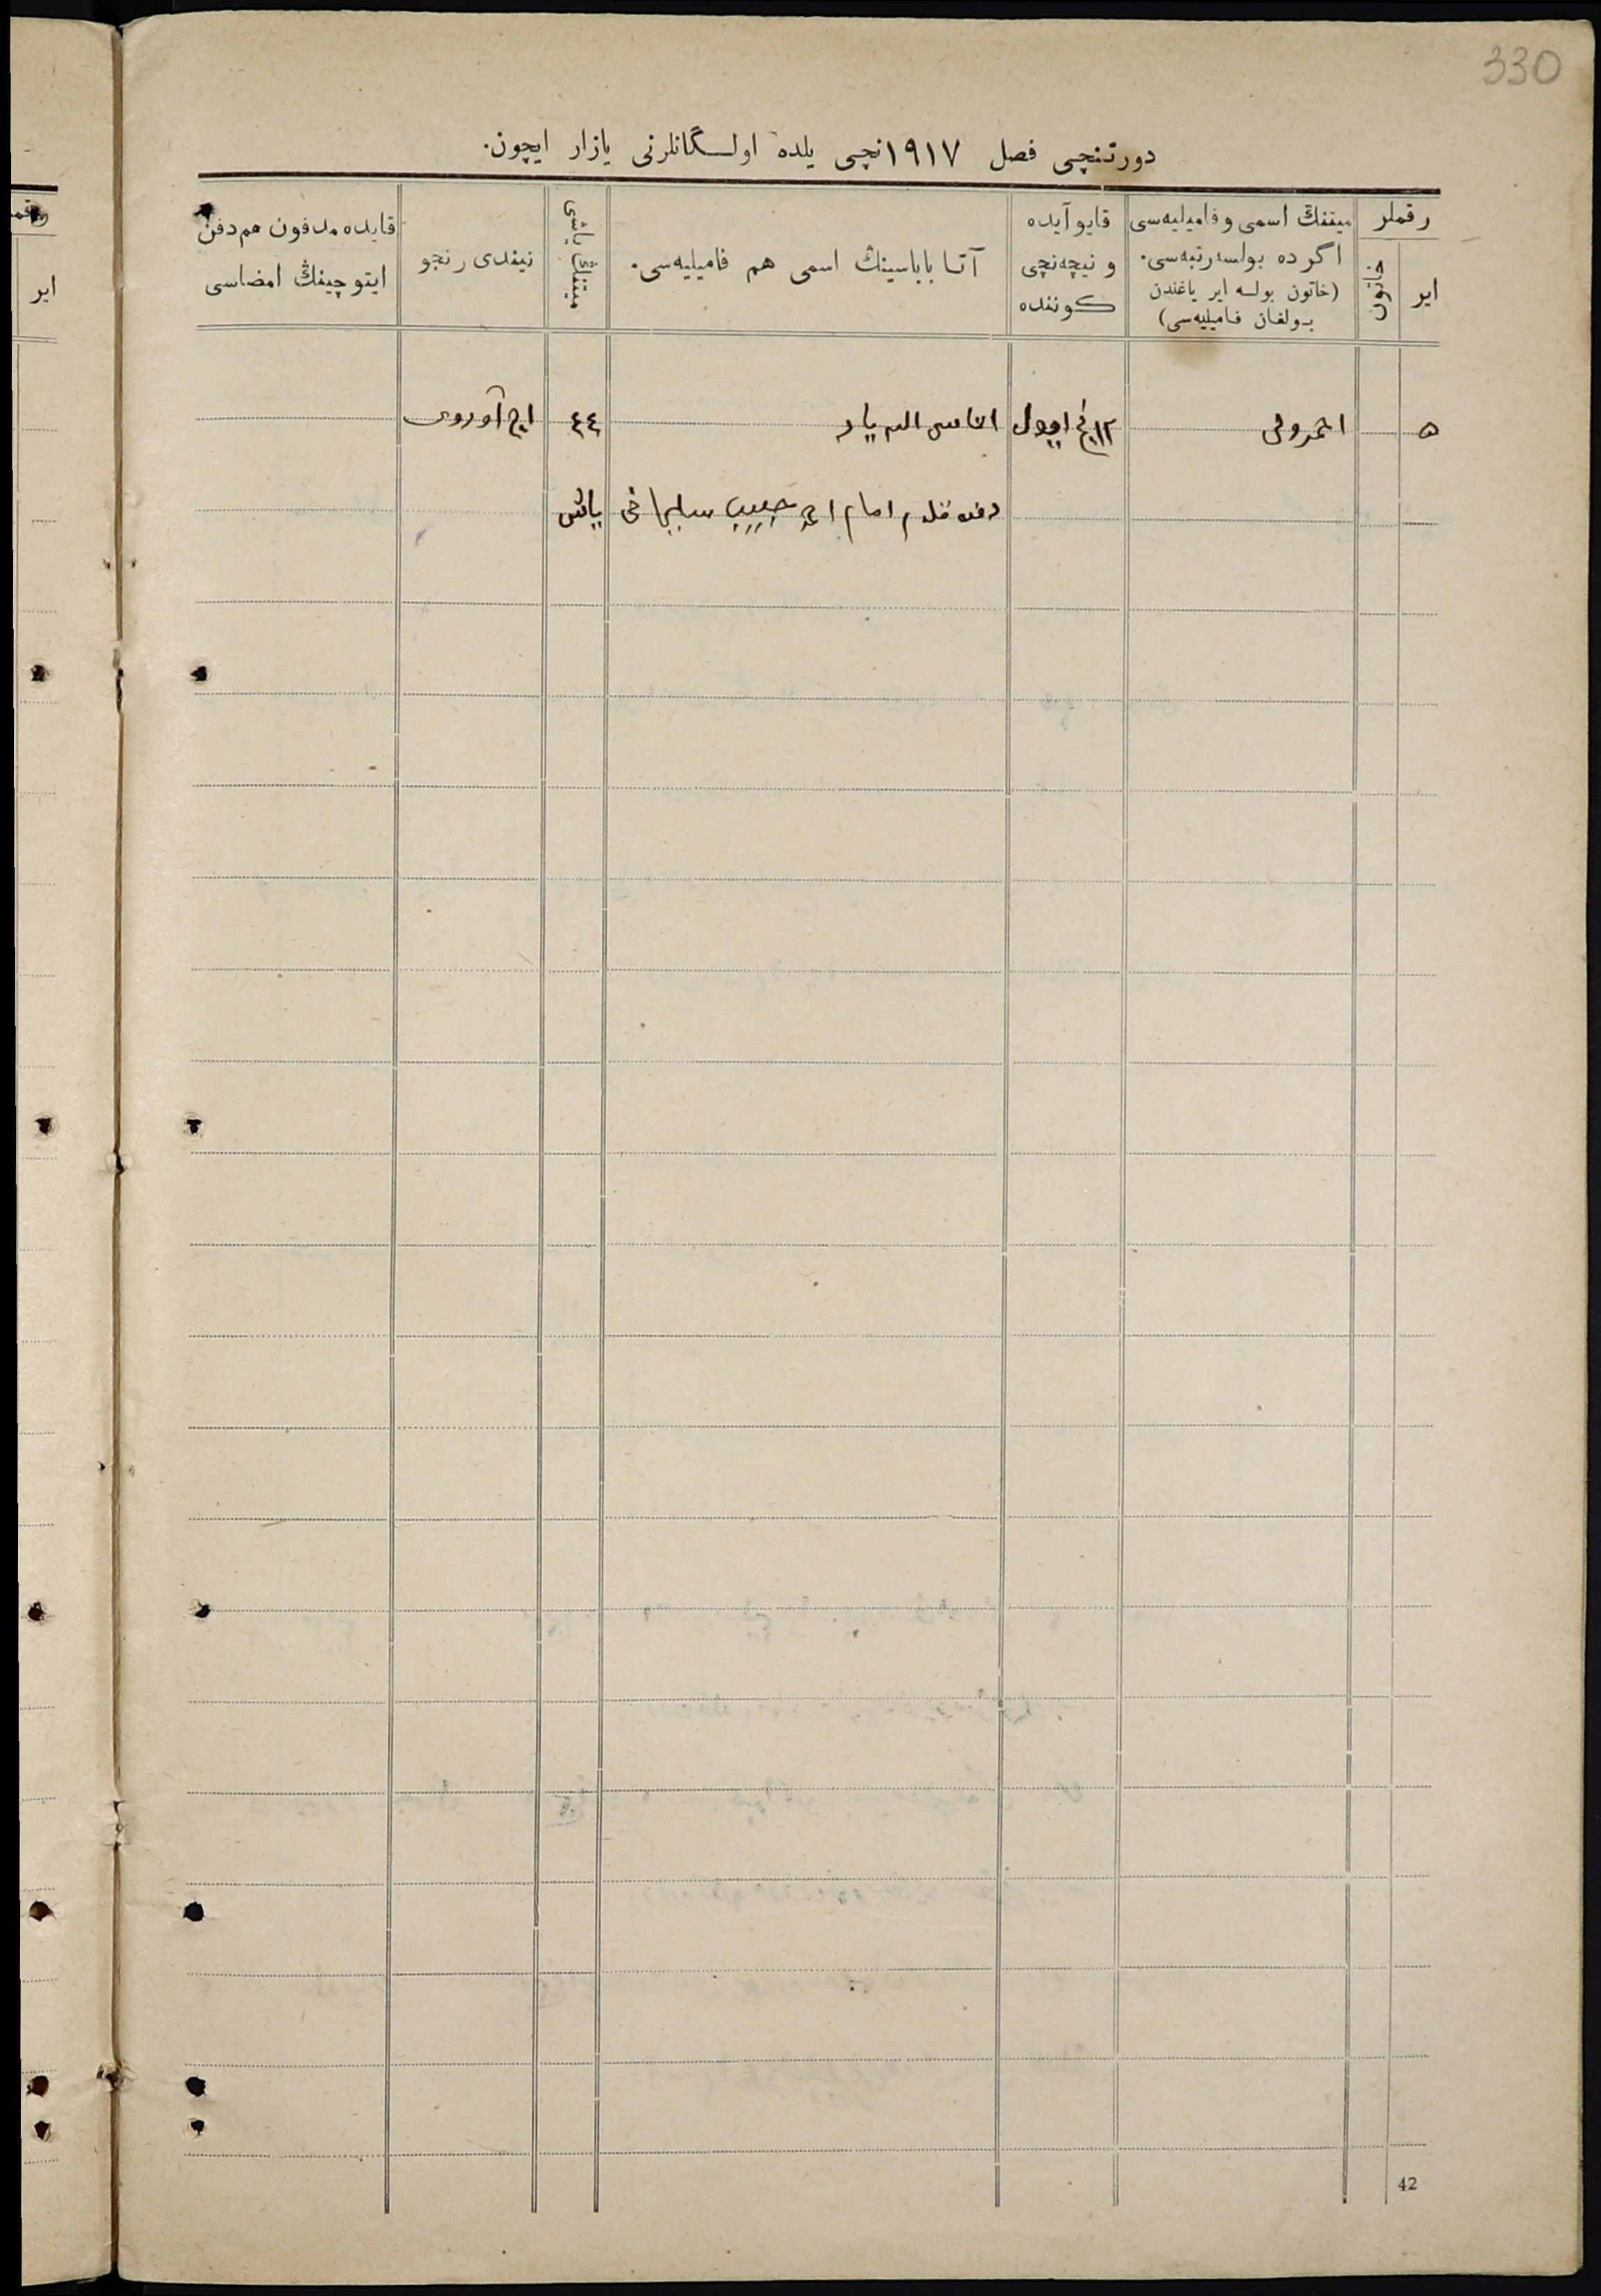 330
دورتنچی فصل ١٩١٧نچی یلده اولـگانلرنی یازار ایچون.
رقملر
ایر
خاتون
میتنڭ اسمی و فامیلیه‌سی
اگرده بولسه رتبه‌سی.
(خاتون بولسه ایر یاغندن
بولغان فامیلیه‌سی)
قایو آیده
و نیچه‌نچی
کوننده
آتا باباسینڭ اسمی هم فامیلیه‌سی.
میتنڭ یاشی
نیندی رنجو
قایده مدفون هم دفن
ایتوچینڭ امضاسی
۵
احمدولی
١٢نچی
٤٤
ایچ آوروی
امام
حبیب
یاش
42
رقم
ایر